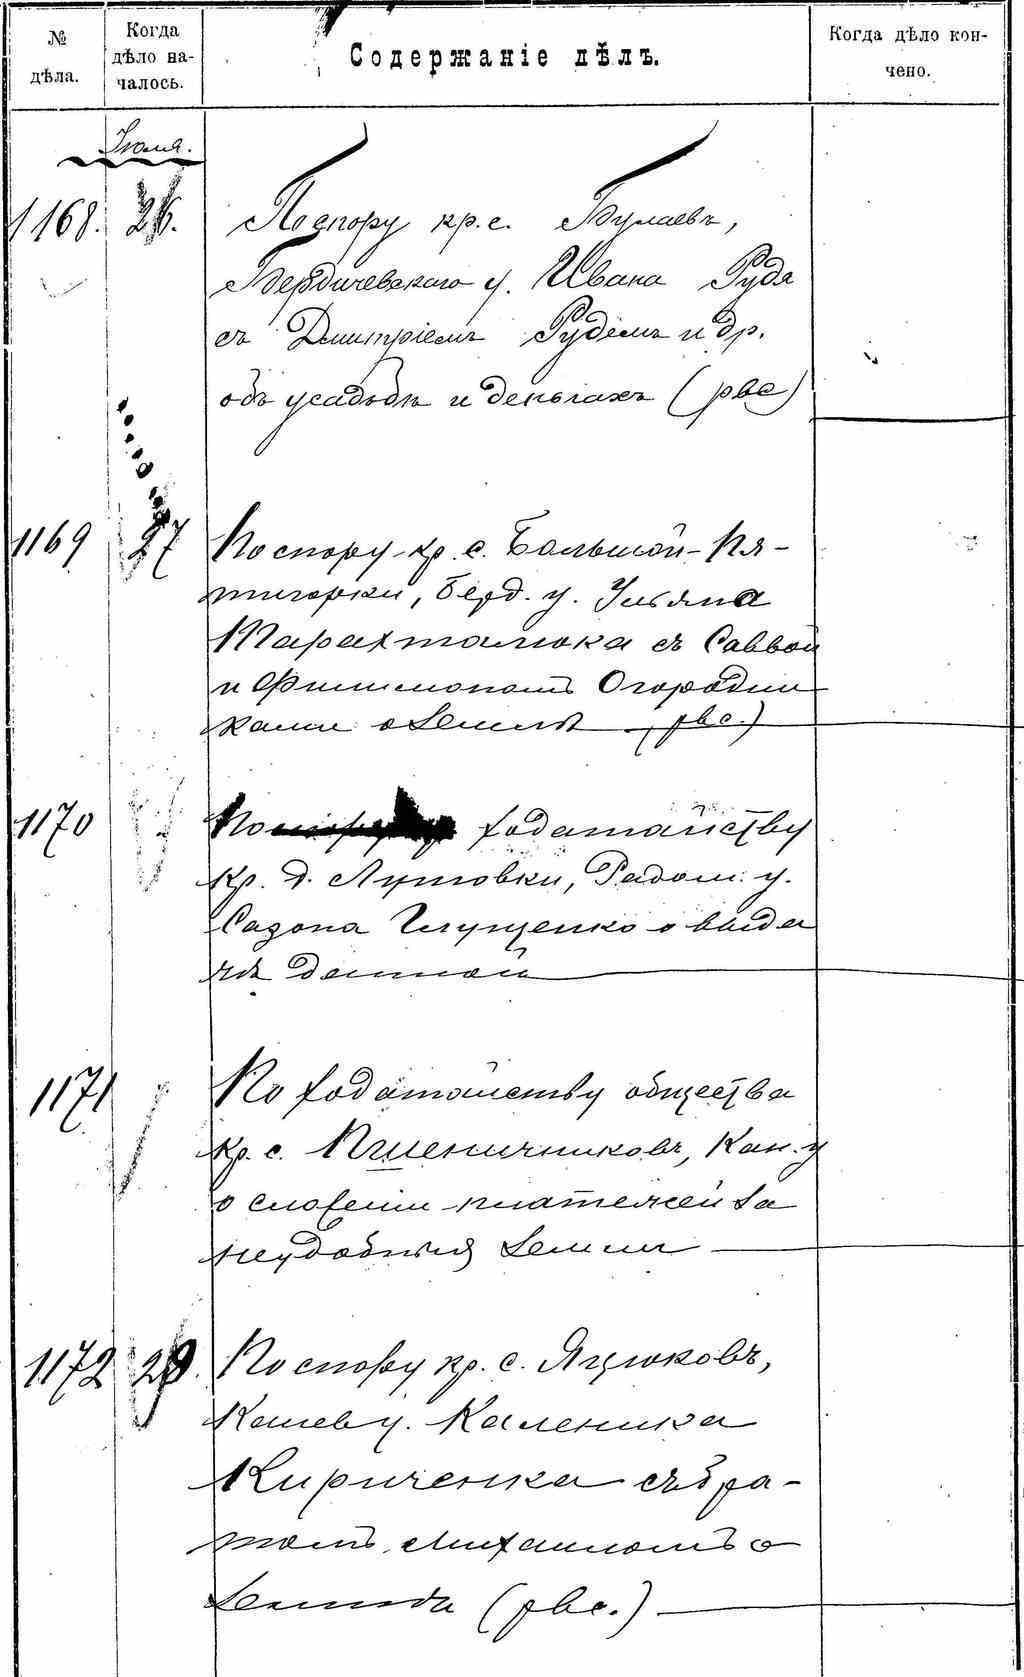 № дѣла.
Когда дѣло на-
чалось.
Содержаніе дѣлъ.
Когда дѣло кон-
чено.
Іюля.
1168. 26. По спору кр. с. Булаевъ,
Бердичевскаго у. Ивана Рудя
съ Дмитріемъ Рудемъ и др.
объ усадьбѣ и деньгахъ (рвс)
1169 27 По спору кр. с. Большой-Пя-
тигорки, Берд. у. Ульяна
Тарахталюка съ Саввой
и Филимономъ Огородни
ками о землѣ (рвс.)
1170 По ходатайству
кр. д. Лутовки, Радом. у.
Сазона Глущенко о выда
чѣ данной
1171 По ходатайству общества
кр. с. Пшеничниковъ, Кан. у
о сложеніи платежей за
неудобныя земли
1172 28. По спору кр. с. Яцюковъ,
Каневу. Каленика
Кириченка съ бра-
томъ Михаиломъ о
(рвс.)